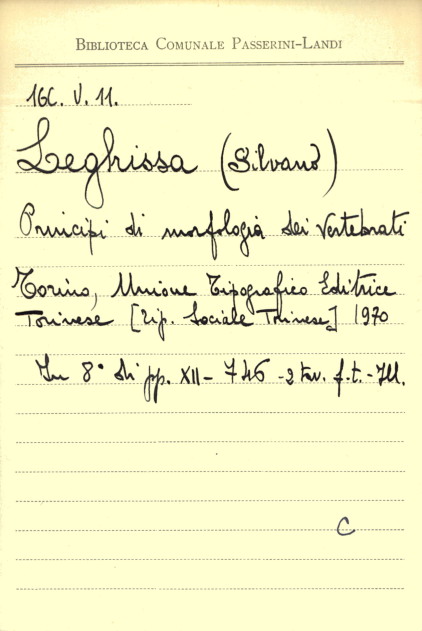 BIBLIOTECA COMUNALE PASSERINI-LANDI
16C. V. 11.
Leghissa (Silvano)
Principi di morfologia dei vertebrati
Torino, Unione Tipografico Editrice
Torinese [Tip. Sociale Torinese] 1970
In 8° di pp. XII - 746 - 2 tav. f.t. - Ill.
C